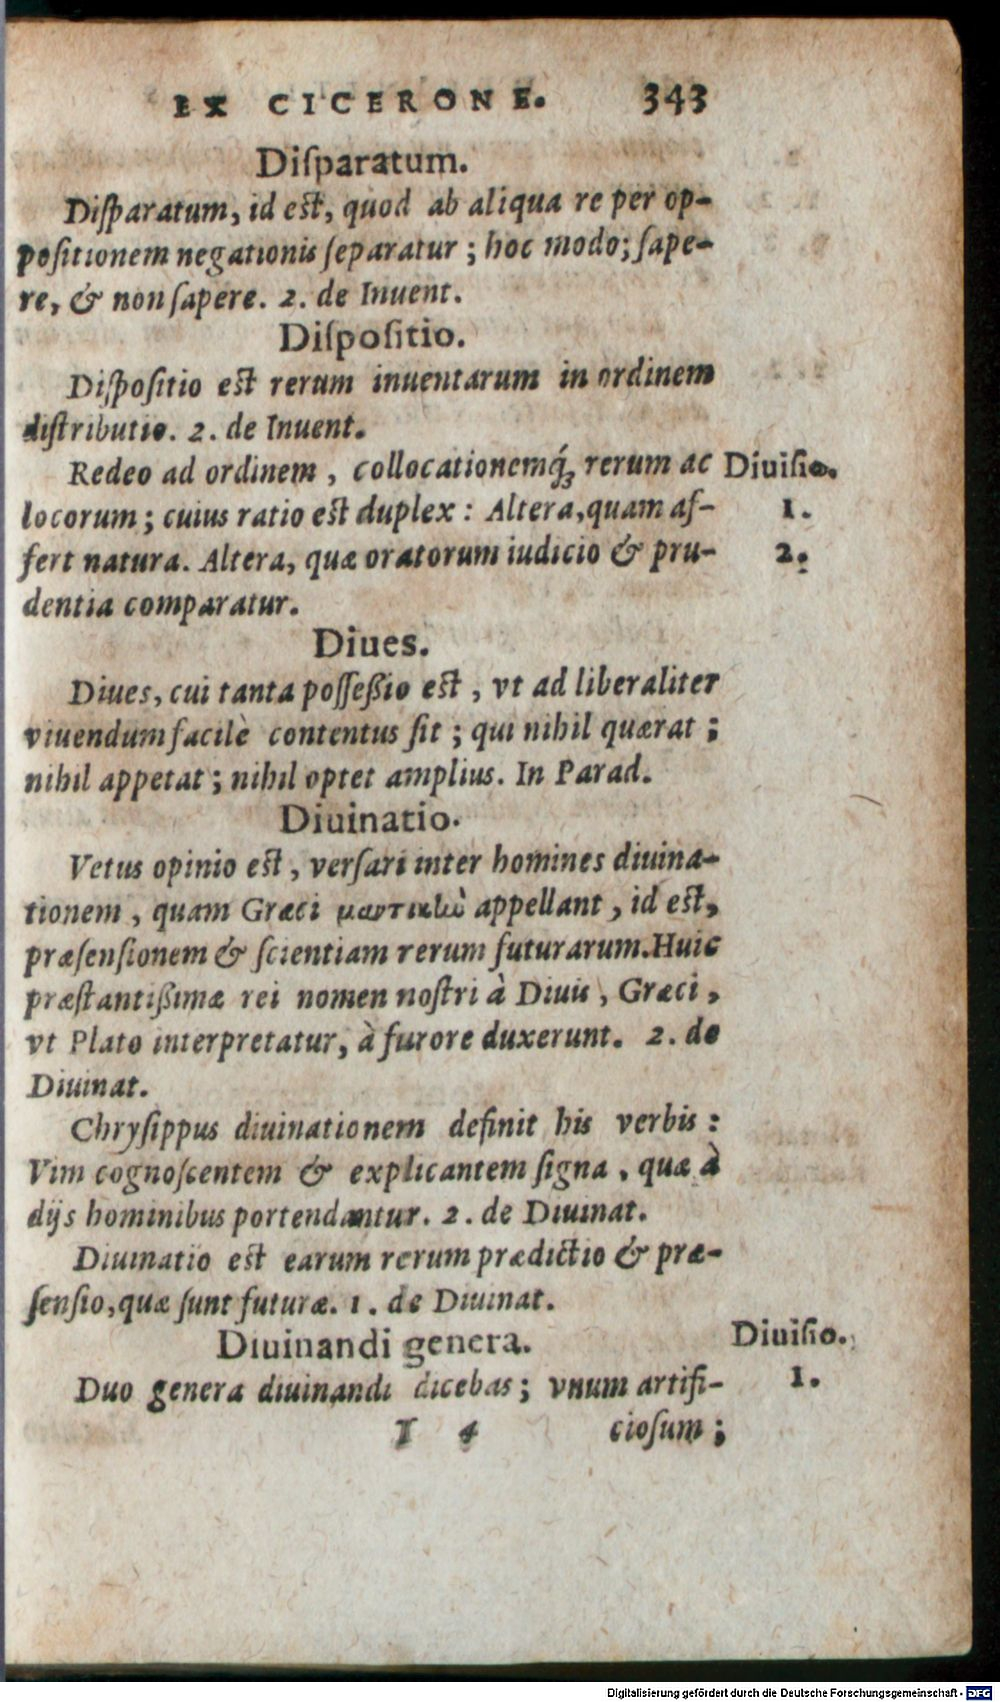 EX CICERONE. 343
Diſparatum.
Diſparatum, id eſt, quod ab aliqua re per op-
poſitionem negationis ſeparatur ; hoc modo; ſape-
re, & non ſapere. 2. de Inuent.
Diſpoſitio.
Diſpoſitio eſt rerum inuentarum in ordinem
diſtributio. 2. de Inuent.
Redeo ad ordinem, collocationemq́ꝫ rerum ac Diuiſio.
locorum ; cuius ratio eſt duplex : Altera, quam af- 1.
fert natura. Altera, quæ oratorum iudicio & pru- 2.
dentia comparatur.
Diues.
Diues, cui tanta poſſeßio eſt, vt ad liberaliter
viuendum facilè contentus ſit ; qui nihil quærat ;
nihil appetat ; nihil optet amplius. In Parad.
Diuinatio.
Vetus opinio eſt, verſari inter homines diuina-
tionem, quam Græci μαντικὴν appellant, id eſt,
præſenſionem & ſcientiam rerum futurarum. Huic
præſtantißimæ rei nomen noſtri à Diuis, Græci,
vt Plato interpretatur, à furore duxerunt. 2. de
Diuinat.
Chryſippus diuinationem definit his verbis :
Vim cognoſcentem & explicantem ſigna, quæ à
dijs hominibus portendantur. 2. de Diuinat.
Diuinatio eſt earum rerum prædictio & præ-
ſenſio, quæ ſunt futuræ. 1. de Diuinat.
Diuinandi genera. Diuiſio.
Duo genera diuinandi dicebas ; vnum artifi- 1.
I 4 cioſum ;
Digitalisierung gefördert durch die Deutsche Forschungsgemeinschaft - DFG